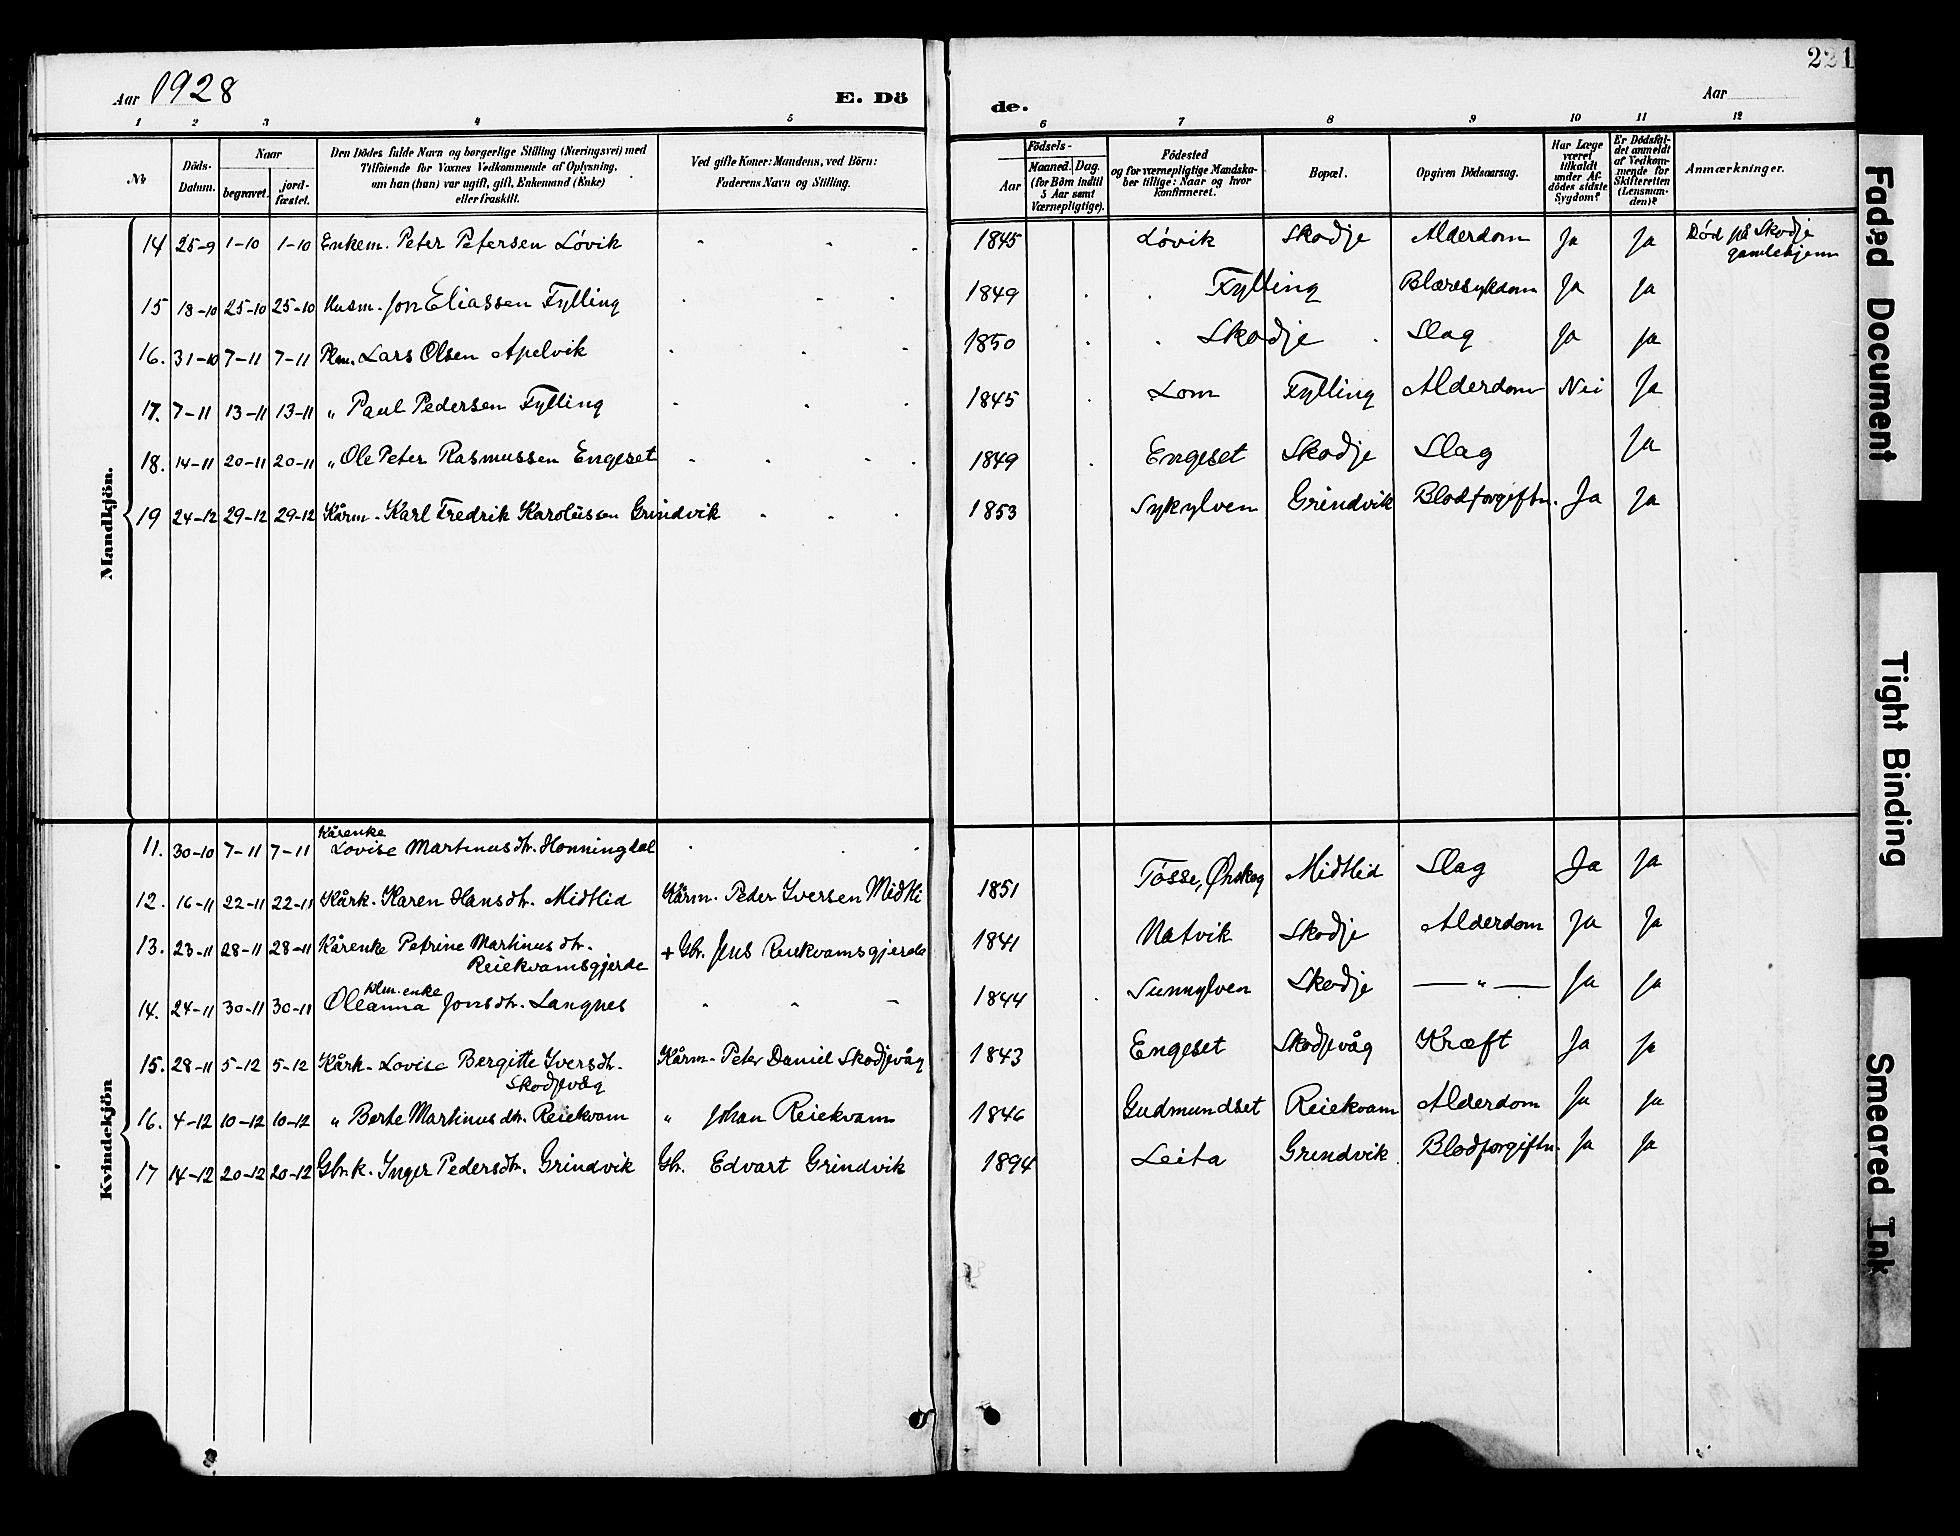 221
Aar 1928
E. Dö
de.
Aar
1 2 3 4 5 6 7 8 9 10 11 12
No
Döds-
Datum.
Naar
begravet.
jord-
fæstet.
Den Dödes fulde Navn og borgerlige Stilling (Næringsvei) med
Tilföiende for Voxnes Vedkommende af Oplysning,
om han (hun) var ugift, gift, Enkemand (Enke)
eller fraskilt.
Ved gifte Koner: Mandens, ved Börn:
Faderens Navn og Stilling.
Födsels-
Aar
Maaned. Dag.
(for Börn indtil
5 Aar samt
Værnepligtige).
Födested
og for værnepligtige Mandska-
ber tillige: Naar og hvor
konfirmeret.
Bopæl.
Opgiven Dödsaarsag.
Har Læge
været
tilkaldt
under Af-
dödes sidste
Sygdom?
Er Dödsfal-
det anmeldt
af Vedkom-
mende for
Skifteretten
(Lensman-
den)?
Anmærkninger.
Mandkjön.
14 25-9 1-10 1-10 Enkem. Peter Petersen Lövik 1845 Lövik Skodje Alderdom Ja Ja Död på Skodje
gamlehjem
15 18-10 25-10 25-10 Husm. Jon Eliassen Fylling 1849 Fylling Blæresykdom Ja Ja
16. 31-10 7-11 7-11 Lars Olsen Apelvik 1850 Skodje Slag Ja Ja
17. 7-11 13-11 13-11 " Paul Pedersen Fylling 1845 Lom Fylling Alderdom Nei Ja
18. 14-11 20-11 20-11 " Ole Peter Rasmussen Engeset 1849 Engeset Skodje Slag Ja
19 24-12 29-12 29-12 Kårm. Karl Fredrik Karolüssen Grindvik 1853 Sykylven Grindvik Blodforgiftn. Ja Ja
Kvindekjön
Kårenke
11. 30-10 7-11 7-11 Lovise Martinusdtr. Honningdal
Tösse, Ørskog Midtlid Slag Ja Ja
12. 16-11 22-11 22-11 Kårk. Karen Hansdtr. Midtlid Kårm. Peder Iversen Midtli 1851
Natvik Skodje Alderdom Ja Ja
13. 23-11 28-11 28-11 Kårenke Petrine Martinusdtr. + Gbr. Jens Reiekvamsgjerde 1841
Reiekvamsgjerde
Sunnylven Skodje — " — Ja Ja
enke
14. 24-11 30-11 30-11 Oleanna Jonsdtr. Langnes 1844
Engeset Skodjevåg Kræft Ja Ja
15. 28-11 5-12 5-12 Kårk. Lovise Bergitte Iversdtr. Kårm. Peter Daniel Skodjevåg 1843
Skodjevåg
16. 4-12 10-12 10-12 " Berte Martinusdtr. Reiekvam " Johan Reiekvam 1846 Gudmundset Reiekvam Alderdom Ja Ja
17 14-12 20-12 20-12 Gbr.k. Inger Pedersdtr. Grindvik Gbr. Edvart Grindvik 1894 Leita Grindvik Blodforgiftn. Ja Ja
Faded Document
Tight Binding
Smeared Ink